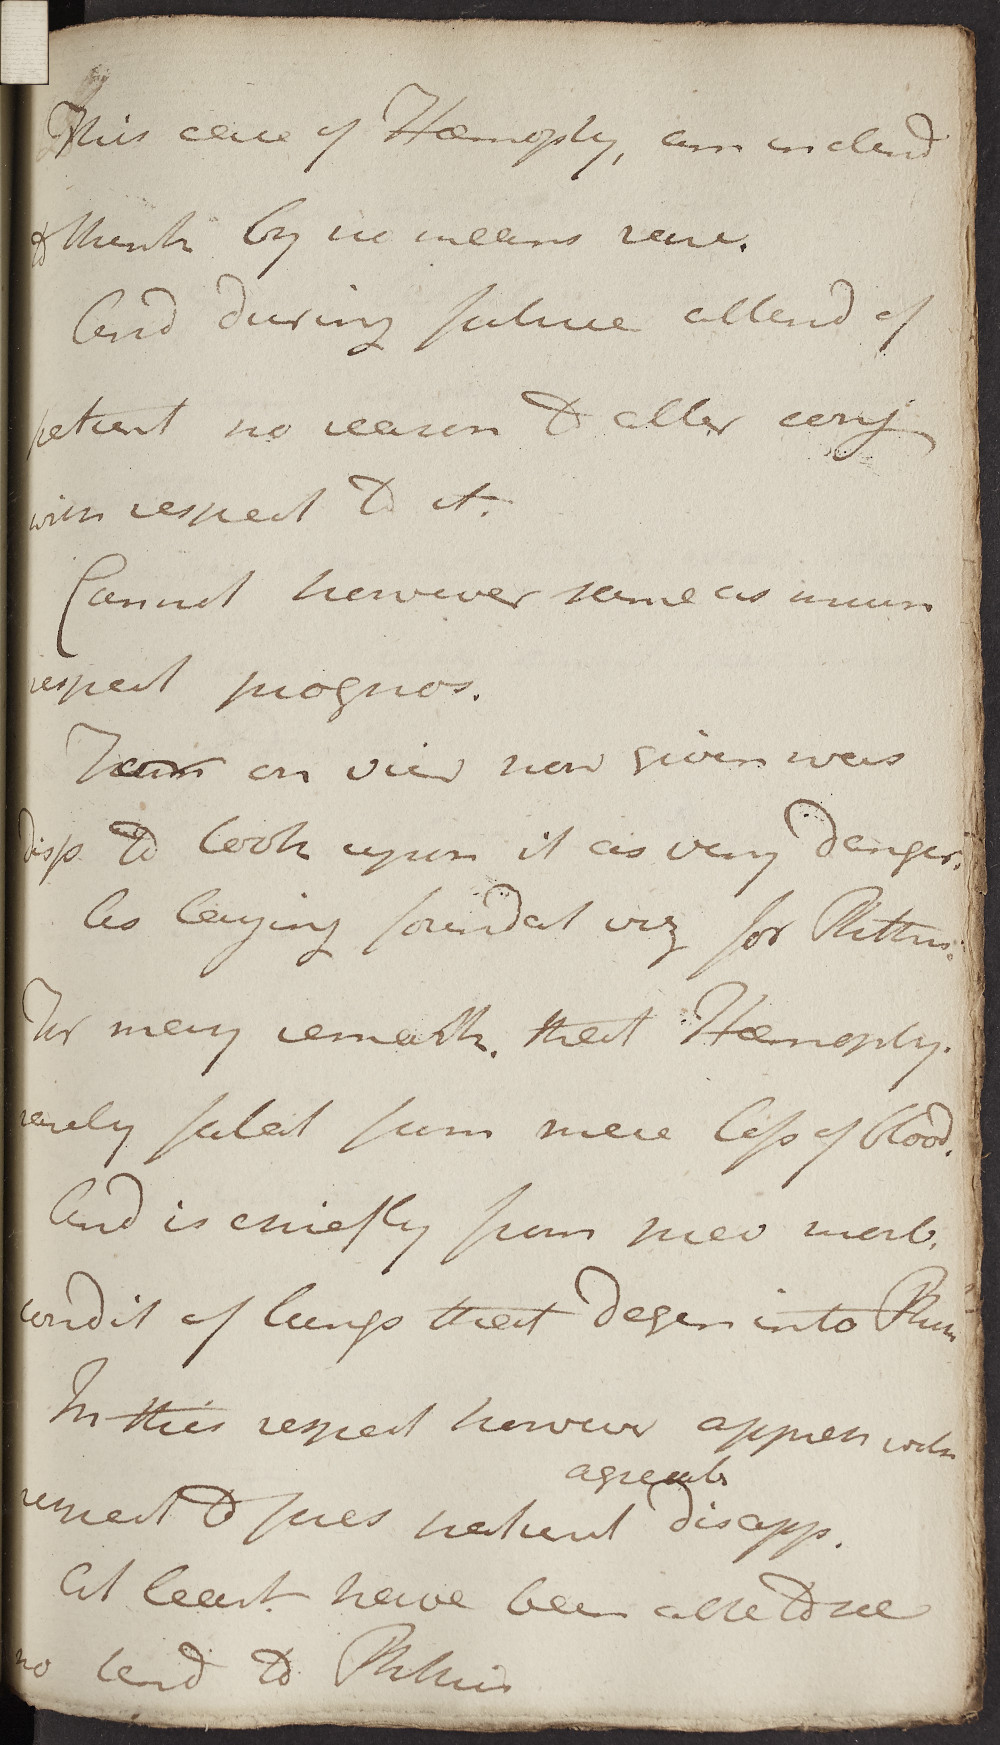 This case of Hæmopty, am inclend
to think by no means rare.
And during future attend of
patient no reason to alter conj
with respect to it.
Cannot however same as much
respect prognos.
From on view now given was
disp to look upon it as very danger.
As laying foundat viz for Phthis.
For many remark. that Hæmopty.
rarely fatal from mere loss of blood.
And is chiefly from prev morb.
condit of lungs that degen into Phthis
In this respect however appreh with
agreeab
respect to pres patient disapp.
At least have been able to see
no tend to Phthis